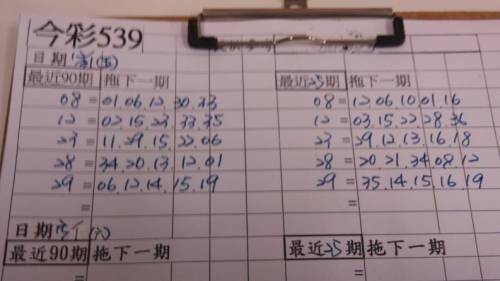 今彩539
日期
最近90期 拖下一期
08 = 01.06.12.30.33
12 = 02.15.23.33.35
23 = 11.29.15.22.06
28 = 34.20.13.12.01
29 = 06.12.14.15.19
=
最近25期 拖下一期
08 = 12.06.10.01.16
12 = 03.15.22.28.36
23 = 29.12.13.16.18
28 = 20.21.34.08.12
29 = 35.14.15.16.19
=
=
日期
最近90期 拖下一期
=
最近25期 拖下一期
=